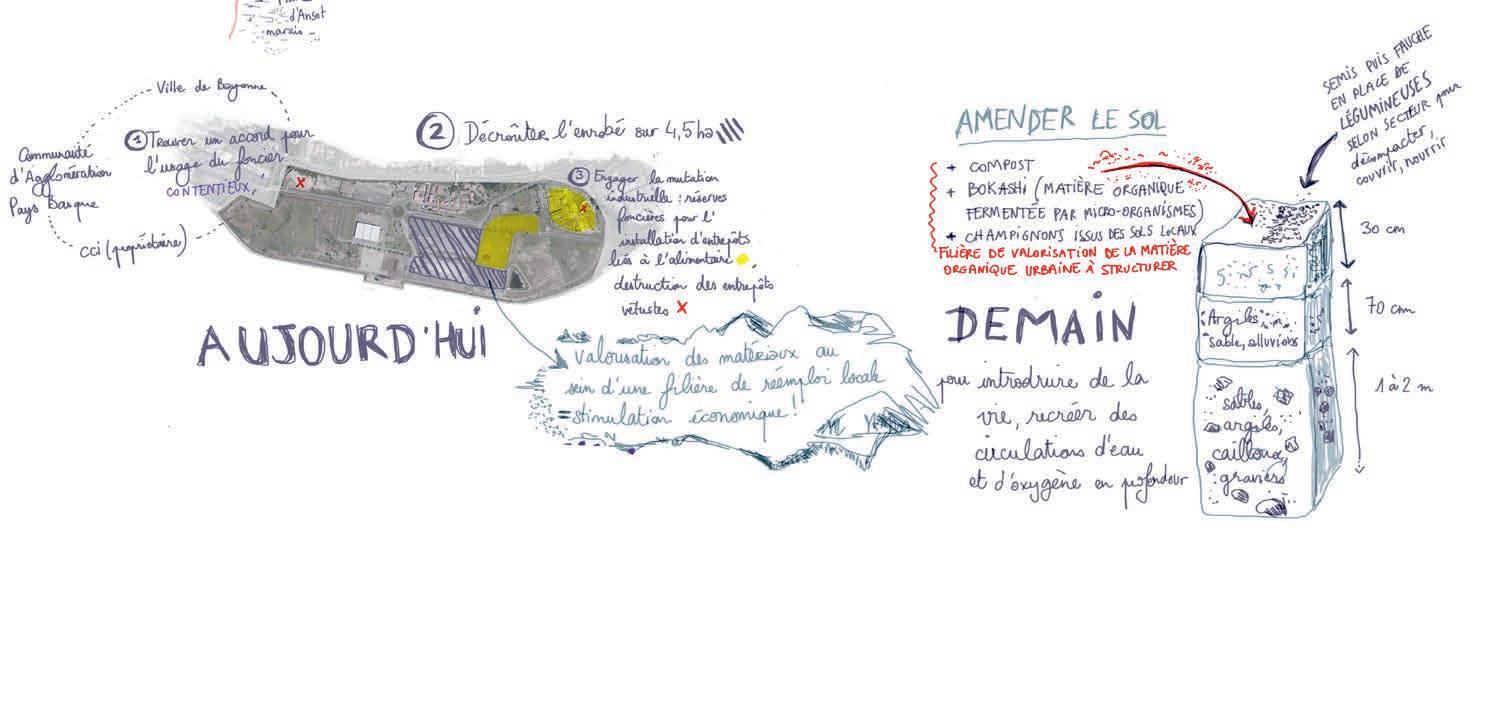 d'Ansot
marais
Ville de Bayonne
Communauté
d'Agglomération
Pays Basque
CCI (propriétaire)
① Trouver un accord pour
l'usage du foncier
CONTENTIEUX!
② Décroûter l'enrobé sur 4,5 ha
③ Engager la mutation
industrielle : réserves
foncières pour l'
installation d'entrepôts
liés à l'alimentaire
destruction des entrepôts
vétustes X
AUJOURD'HUI
Valorisation des matériaux au
sein d'une filière de réemploi locale
= stimulation économique!
AMENDER LE SOL
+ COMPOST
+ BOKASHI (MATIÈRE ORGANIQUE
FERMENTÉE PAR MICRO-ORGANISMES)
+ CHAMPIGNONS ISSUS DES SOLS LOCAUX
FILIÈRE DE VALORISATION DE LA MATIÈRE
ORGANIQUE URBAINE À STRUCTURER
DEMAIN
pour introdruire de la
vie, recréer des
circulations d'eau
et d'oxygène en profondeur
SEMIS PUIS FAUCHE
EN PLACE DE
LÉGUMINEUSES
SELON SECTEUR pour
décompacter,
couvrir, nourrir
30 cm
70 cm
1 à 2 m
Argiles,
sable, alluvions
sables,
argiles,
cailloux,
graviers